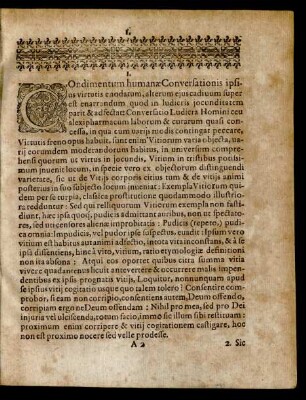 I.
COndimentum humanæ Conversationis ipsius
virtutis exodium, alterum ejus cadium super
est enarrandum quod in ludicris jocunditatem
parit & adfectat Conversatio. Ludicra Homini ceu
alexipharmacum laborum & curarum quasi concessa,
in qua cum variis modis contingat peccare,
Virtutis freno opus habuit. Sunt enim Vitiorum varia objecta, variis
eorundem moderandorum habitus, in universum comprehensi
quorum ut virtus in jocundis, Vitium in tristibus potissimum
invenit locum, in specie vero ex objectorum distinguendi
varietate, sic ut de Vitijs corporis citius tum & de vitijs animi
posterius in suo subjecto locum inveniat: Exempla Vitiorum quidem
per se turpia, classica prostitutione quodammodo illustriora
redduntur: Sed qui relliquorum Vitiorum exempla non fastidiunt,
hæc ipsa quoq; pudicis admittant auribus, non ut spectatores,
sed ut censores alienæ improbitatis: Pudicis (repeto,) pudica
omnia: Impudicis, vel pudor ipse suspectus. cunctis: Ipsum vero
vitium est habitus autanimi adfectio, in tota vita inconstans, & à se
ipsa dissentiens, hinc à vito, virium, ratio etymologiæ definitioni
non ita absona: Atqui eos oportet quibus cura summa vita
vivere quadantenus licuit antevertere & occurrere malis impendentibus
ex ipsis prognatis vitijs, Loquitur, nonnunquam apud
se ipsus vitij cogitatio usque quo talem tolero! Consentire comprobor,
si eam non corripio, consentiens autem, Deum offendo,
corripiam ergo ne Deum offendam: Nihil pro mea, sed pro Dei
injuria vel ulciscenda, totum facio, immo sic illum sibi restituam:
proximum enim corripere & vitij cogitationem castigare, hoc
non est proximo nocere sed velle prodesse.
A 2
2. Sic